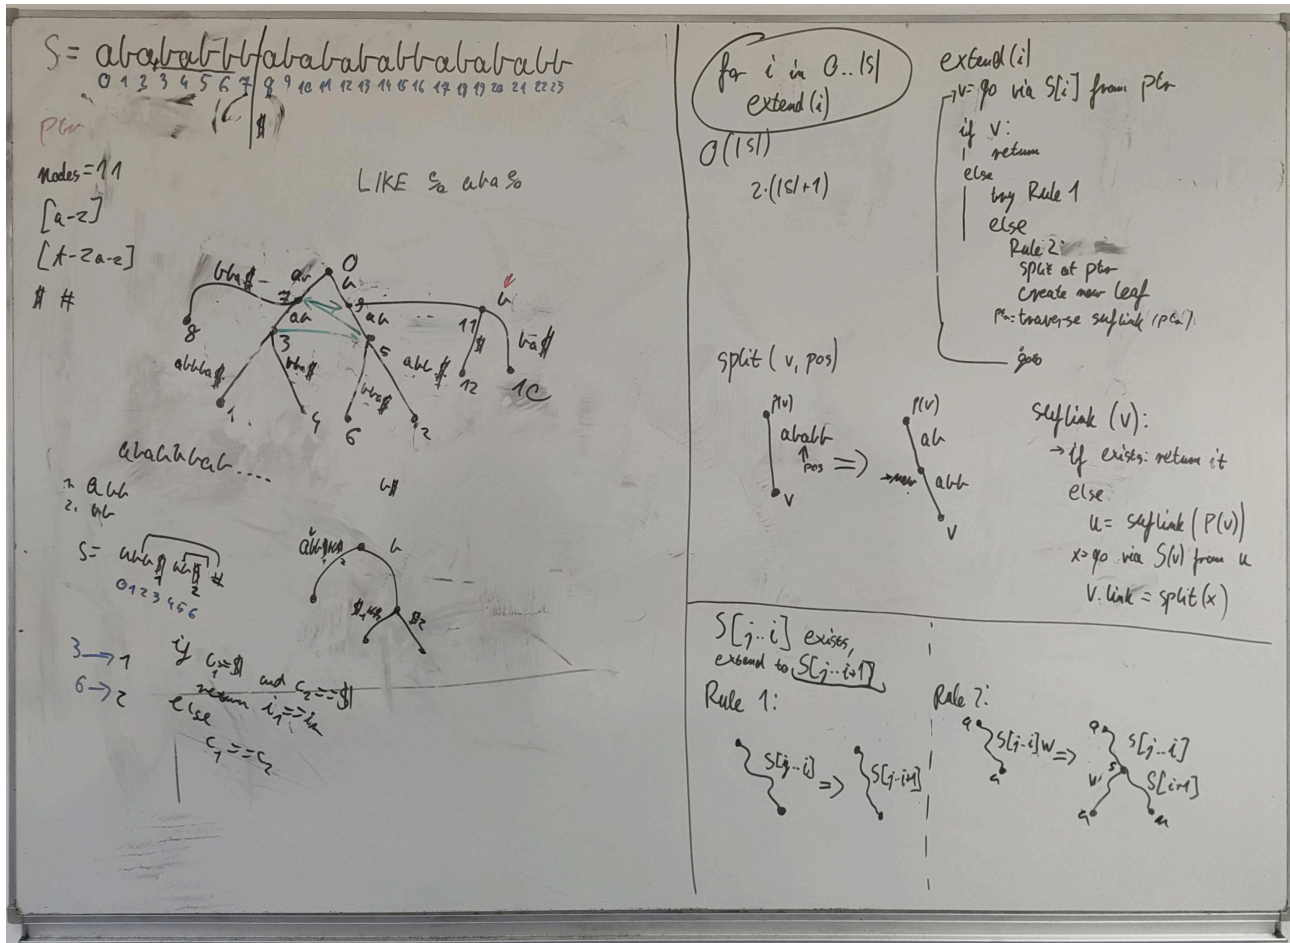 S = abababbbabababababbabababb
0 1 2 3 4 5 6 7 8 9 10 11 12 13 14 15 16 17 18 19 20 21 22 23
$
ptr
nodes=11
[a-z]
[A-Za-z]
$ #
LIKE % aba %
0
bba$
ab
b
7
9
b
8
ab
ab
11
$
ba$
3
5
abb$
12
10
abbba$
bba$
bba$
1
4
6
2
1. abb
2. bb
b$
S=
#
1
2
0 1 2 3 4 5 6
b
3 → 1
6 → 2
if c1=$ and c2==$
return i1==i2
else
c1==c2
for i in 0..|S|
extend(i)
O(|S|)
2·(|S|+1)
extend(i)
v= go via S[i] from ptr
if v:
return
else
try Rule 1
else
Rule 2:
split at ptr
create new leaf
ptr=traverse suflink(ptr)
goto
split(v, pos)
p(v)
ababb
pos
v
=>
p(v)
ab
→new
abb
v
suflink(v):
→ if exists: return it
else
u= suflink(P(v))
x= go via S(v) from u
v.link = split(x)
S[j..i] exists,
extend to S[j..i+1]
Rule 1:
S[j..i]
=>
S[j..i+1]
Rule 2:
S[j-i]w
=>
S[j..i]
S[i+1]